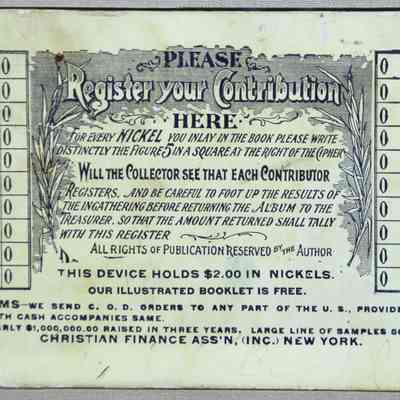 PLEASE
Register your Contribution
HERE
FOR EVERY NICKEL YOU INLAY IN THE BOOK PLEASE WRITE
DISTINCTLY THE FIGURE 5 IN A SQUARE AT THE RIGHT OF THE CIPHER
WILL THE COLLECTOR SEE THAT EACH CONTRIBUTOR
REGISTERS, AND BE CAREFUL TO FOOT UP THE RESULTS OF
THE INGATHERING BEFORE RETURNING THE ALBUM TO THE
TREASURER, SO THAT THE AMOUNT RETURNED SHALL TALLY
WITH THIS REGISTER
ALL RIGHTS OF PUBLICATION RESERVED BY THE AUTHOR
0 0
0 0
0 0
0 0
0 0
0 0
0 0
0 0
0 0
0 0
THIS DEVICE HOLDS $2.00 IN NICKELS.
OUR ILLUSTRATED BOOKLET IS FREE.
MS—WE SEND C. O. D. ORDERS TO ANY PART OF THE U. S., PROVIDE
TH CASH ACCOMPANIES SAME.
ARLY $1,000,000.00 RAISED IN THREE YEARS, LARGE LINE OF SAMPLES
CHRISTIAN FINANCE ASS'N, (INC.) NEW YORK.